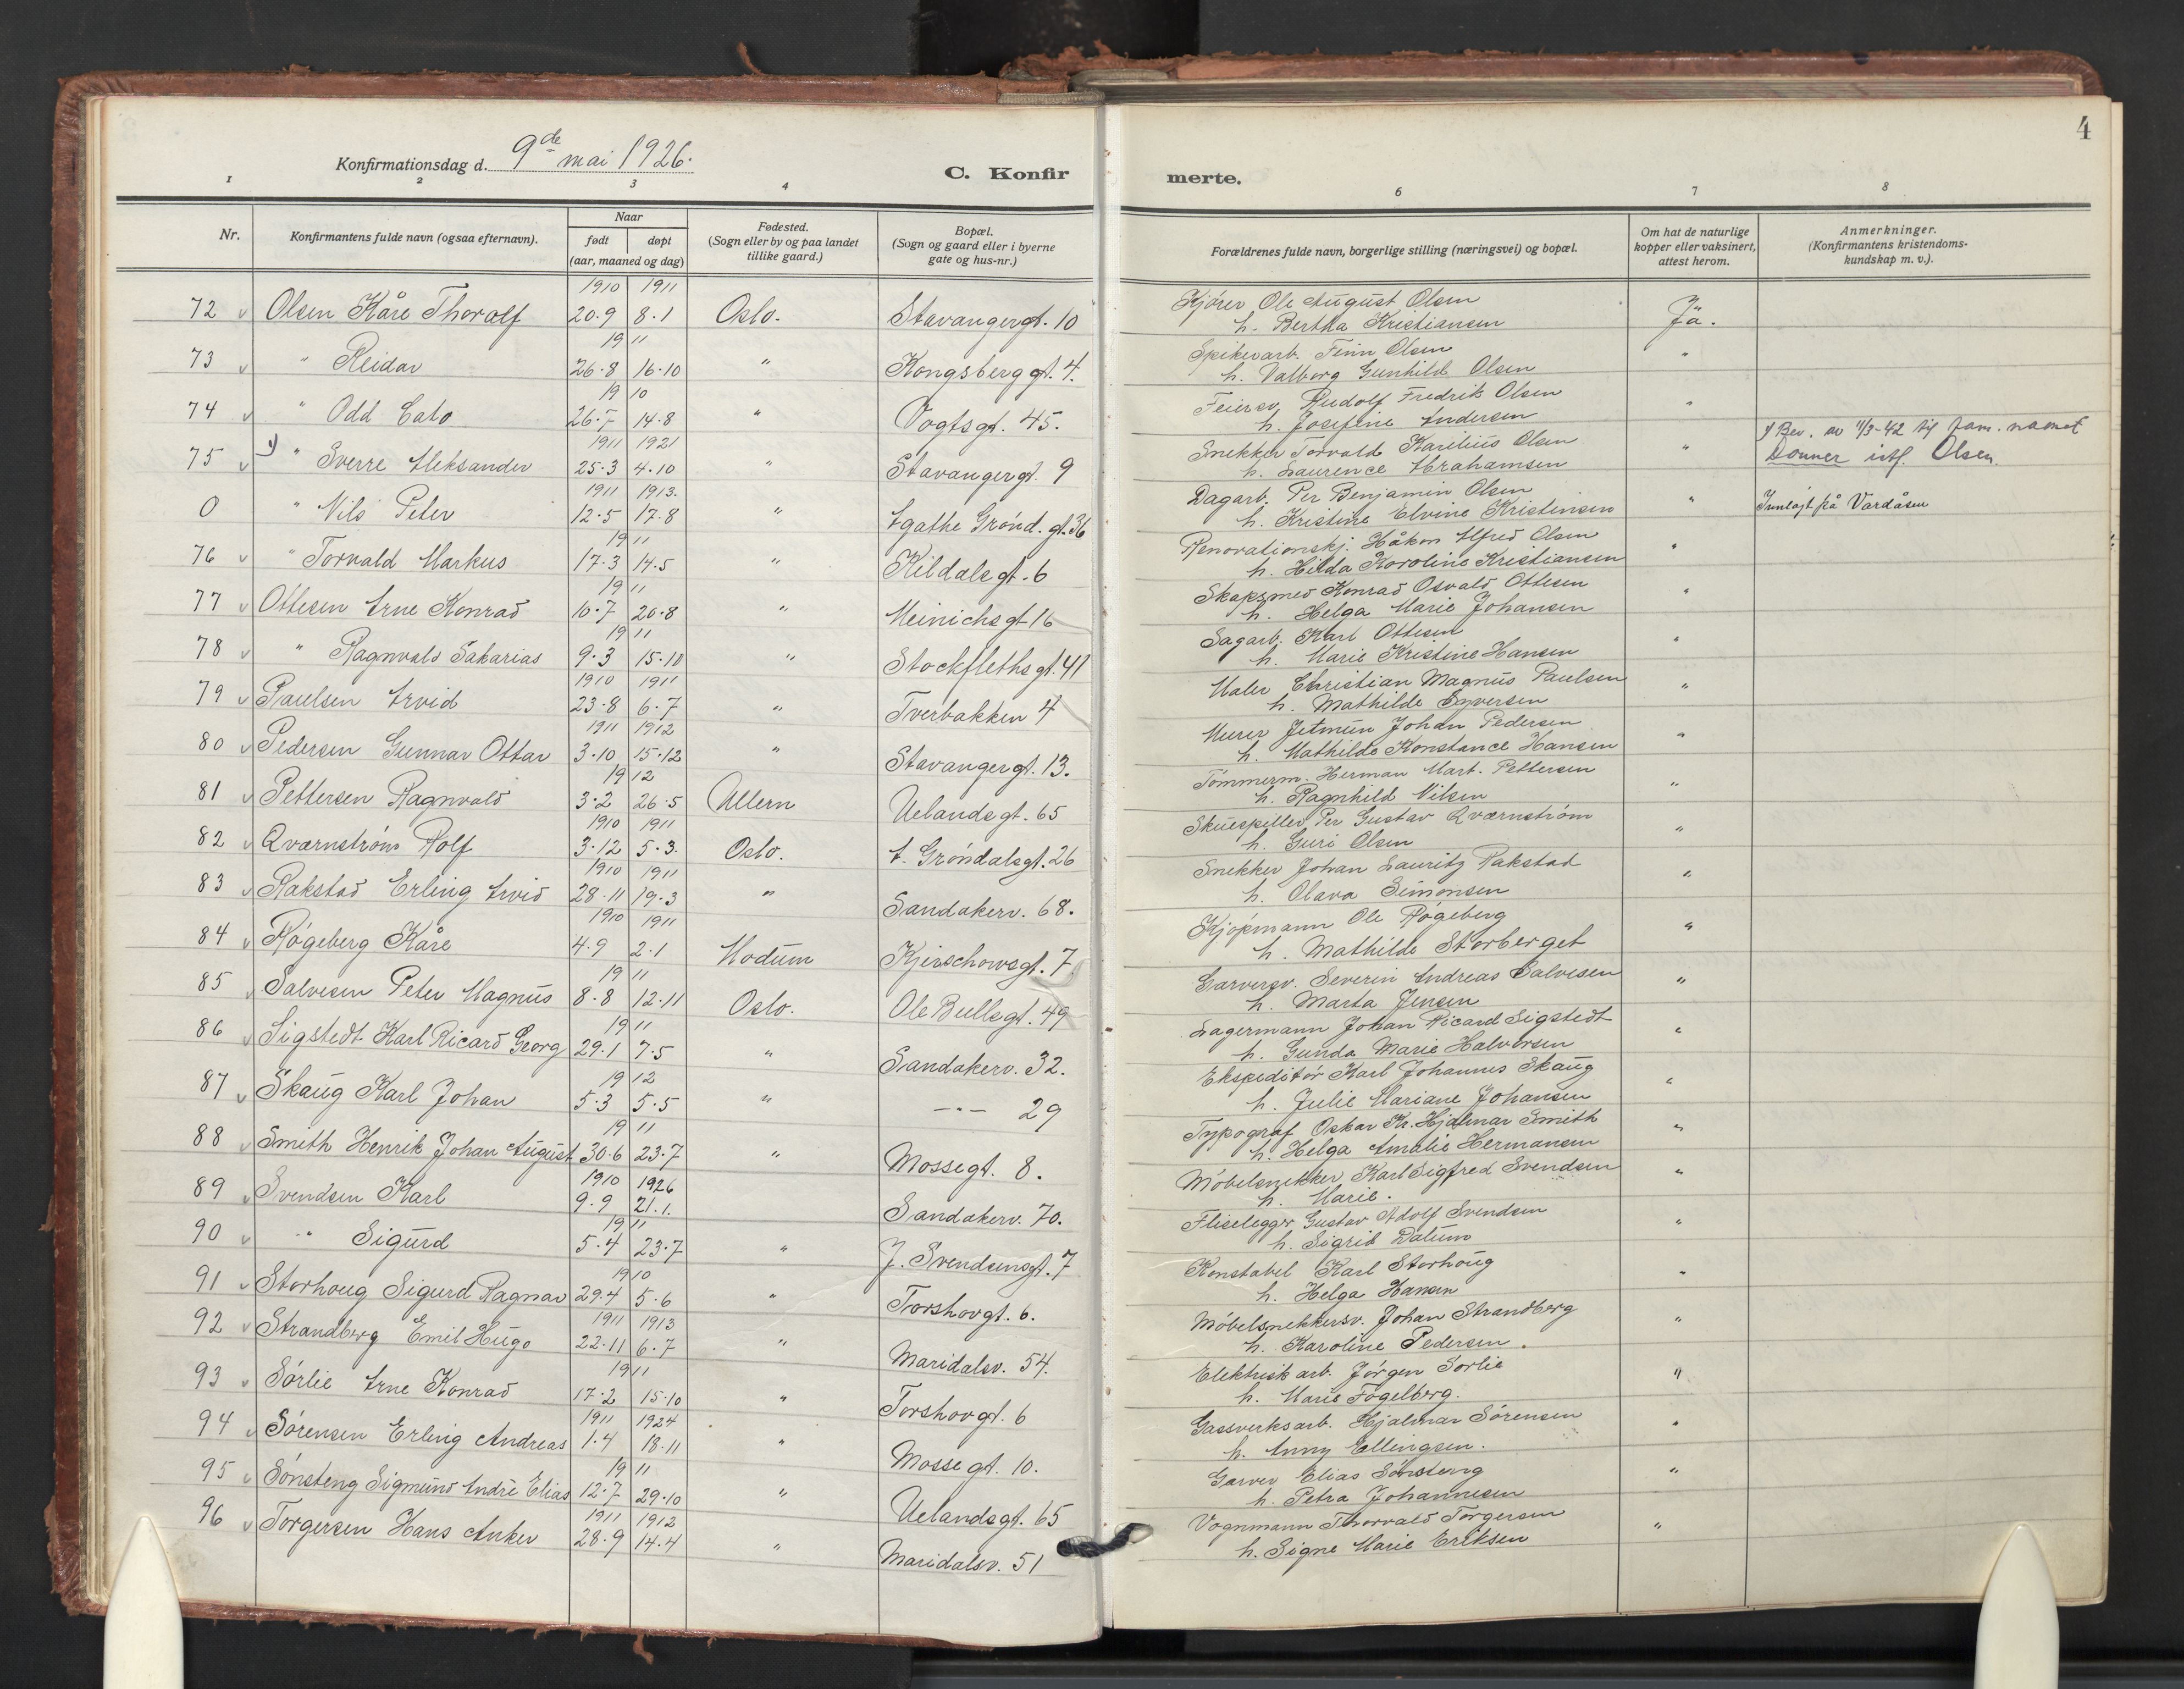 4
Konfirmationsdag d. 9de mai 1926.
C. Konfir
merte.
1 2 3 4 6 7 8
Nr.
Konfirmantens fulde navn (ogsaa efternavn).
Naar
født døpt
(aar, maaned og dag)
Fødested.
(Sogn eller by og paa landet
tillike gaard.)
Bopæl.
(Sogn og gaard eller i byerne
gate og hus-nr.)
Forældrenes fulde navn, borgerlige stilling (næringsvei) og bopæl.
Om hat de naturlige
kopper eller vaksinert,
attest herom.
Anmerkninger.
(Konfirmantens kristendoms-
kundskap m. v.).
1910 1911
72 v Olsen Kåre Thoralf 20.9 8.1 Oslo. Stavangergt. 10 Kjører Ole August Olsen Ja.
h. Bertha Kristiansen
1911
73 v " Reidar 26.8 16.10 " Kongsberggt. 4. Spikerarb. Finn Olsen "
h. Valborg Gunhild Olsen
1910
74 v " Odd Cato 26.5 14.8 " Vogtsgt. 45. Feiersv. Rudolf Fredrik Olsen "
h. Josefine Andersen
1911 1921
75 v 1) " Sverre Aleksander 25.3 4.10 " Stavangergt. 9 Snekker Torvald Karilius Olsen "
h. Laurence Abrahamsen
Bev. av 11/3-42 til fam. navnet
Donner istf. Olsen.
1911 1913.
0 " Nils Peter 12.5 17.8 " Agathe Grønd. gt. 36 Dagarb. Per Benjamin Olsen "
h. Kristine Elvine Kristensen
Innlagt på Vardåsen
1911
76 v " Torvald Markus 17.3 14.5 " Kildalsgt. 6 Renovationskj. Håkon Alfred Olsen "
h. Hilda Karoline Kristiansen
1911
77 v Ottesen Arne Konrad 10.7 20.8 " Meinichsgt 16 Skapsmed Konrad Osvald Ottesen "
h. Helga Marie Johansen
1911
78 v " Ragnvald Sakarias 9.3 15.10 " Stockflethsgt. 41 Sagarb. Karl Ottesen "
h. Marie Kristine Hansen
1910 1911
79 v Paulsen Arvid 23.8 6.7 " Tverbakken 4 Maler Christian Magnus Paulsen "
h. Mathilde Syversen
1911 1912
80 v Pedersen Gunnar Ottar 3.10 15.12 " Stavangergt. 13. Murer Jetmun Johan Pedersen "
h. Mathilde Konstance Hansen
1912
81 v Pettersen Ragnvald 3.2 26.5 Ullern Uelandsgt. 65 Tømmerm. Herman Mart. Pettersen "
h. Ragnhild Nilsen
1910 1911
82 v Qvarnstrøm Rolf 3.12 5.3. Oslo. A. Grøndalsgt. 26 Skuespiller Per Gustav Qværnstrøm "
h. Guri Olsen
1910 1911
83 v Rakstad Erling Arvid 28.11 19.3 " Sandakerv. 68. Snekker Johan Lauritz Rakstad "
h. Olava Simonsen
1910 1911
84 v Røgeberg Kåre 4.9 2.1 Modum Kjerschowsgt. 7 Kjøpmann Ole Røgeberg "
h. Mathilde Storberget
1911
85 v Salvesen Peter Magnus 8.8 12.11 Oslo. Ole Bullsgt. 49 Garversv. Severin Andreas Salvesen "
h. Marta Jensen
1911
86 v Sigstedt Karl Ricard Georg 29.1 7.5 " Sandakerv. 32. Lagermann Johan Ricard Sigstedt "
h. Gunda Marie Halvorsen
1912
87 v Skaug Karl Johan 5.3 5.5 " —"— 29 Ekspeditør Karl Johannes Skaug "
h. Julie Mariane Johansen
1911
88 v Smith Henrik Johan August 30.6 23.7 " Mossegt. 8. Typograf Oskar Kr. Hjalmar Smith "
h. Helga Amalie Hermansen
1910 1926
89 v Svendsen Karl 9.9 21.1. Sandakerv. 70. Møbelsnekker Karl Sigfred Svendsen "
h. Marie.
1911
90 v " Sigurd 5.4 23.7 " J. Svendsensgt. 7 Fliselegger Gustav Adolf Svendsen "
h. Sigrid Dalum
1910
91 v Storhoug Sigurd Ragnar 29.4 5.6 " Torshovgt. 6. Konstabel Karl Storhoug "
h. Helga Hansen
1911 1913
92 v Strandberg Emil Hugo 22.11 6.7 " Maridalsv. 54. Møbelsnekkersv. Johan Strandberg "
h. Karoline Pedersen.
1911
93 v Sørlie Arne Konrad 17.2 15.10 " Torshovgt. 6 Elektrisk arb. Jørgen Sørlie "
h. Marie Fogelberg.
1911 1924
94 v Sørensen Erling Andreas 1.4 18.11 " Mossegt. 10. Gassverksarb. Hjalmar Sørensen "
h. Anny Ellingsen.
1911
95 v Sønsteng Sigmund André Elias 12.7 29.10 " Uelandsgt. 65 Garver Elias Sønsteng "
h. Petra Johannesen
1911 1912
96 v Torgersen Hans Anker 28.9 14.4 " Maridalsv. 51 Vognmann Thorvald Torgersen "
h. Signe Marie Eriksen